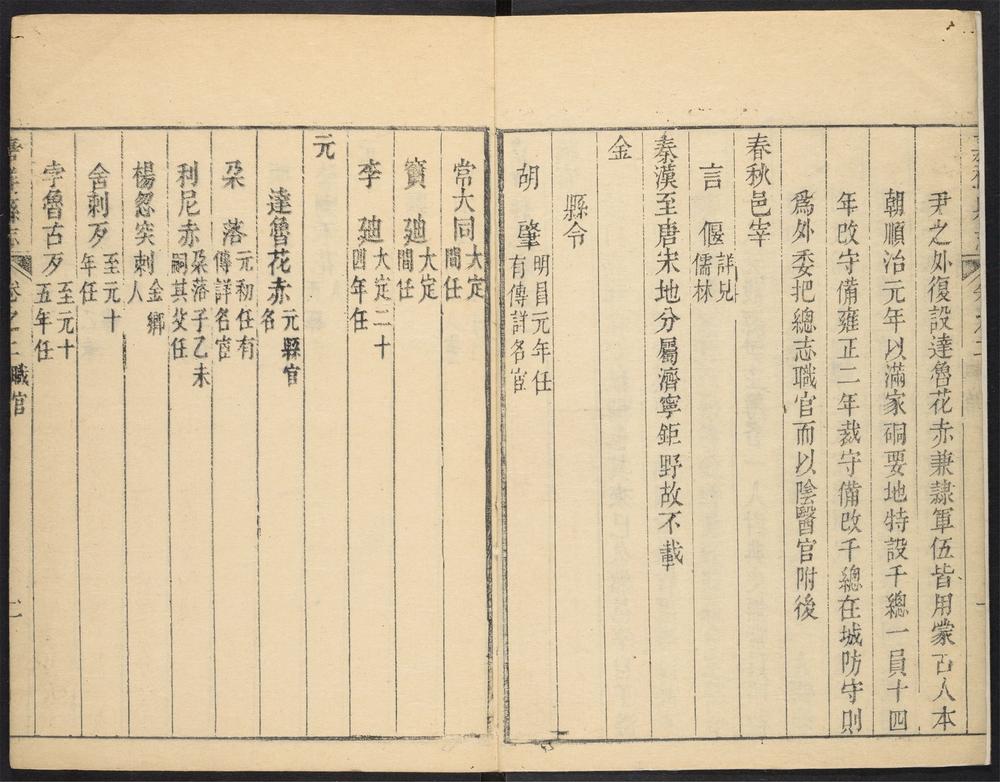 尹之外復設達魯花赤兼隷軍伍皆用蒙古人本
朝順治元年以滿家硐要地特設千總一員十四
年改守備雍正二年裁守備改千總在城防守則
爲外委把總志職官而以陰醫官附後
春秋邑宰
言偃詳見儒林
秦漢至唐宋地分屬濟寧鉅野故不載
金
縣令
胡肇明昌元年任有傳詳名宦
常大同大定間任
竇𨑳大定間任
李𨑳大定二十四年任
元
達魯花赤元縣官名
朶落元初任有傳詳名宦
利尼赤朶落子乙未嗣其父任
楊忽突刺金鄉人
舍刺歹至元十年任
孛魯古歹至元十五年任
縣志 卷之二 職官 二